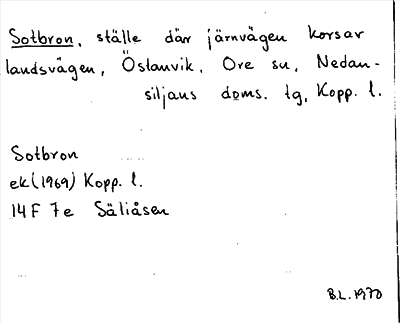 Sotbron, ställe där järnvägen korsar
landsvägen, Östanvik, Ore sn, Nedan-
siljans doms. tg, Kopp. l.
Sotbron
ek (1969) Kopp. l.
14 F 7e Säliåsen
B.L. 1970